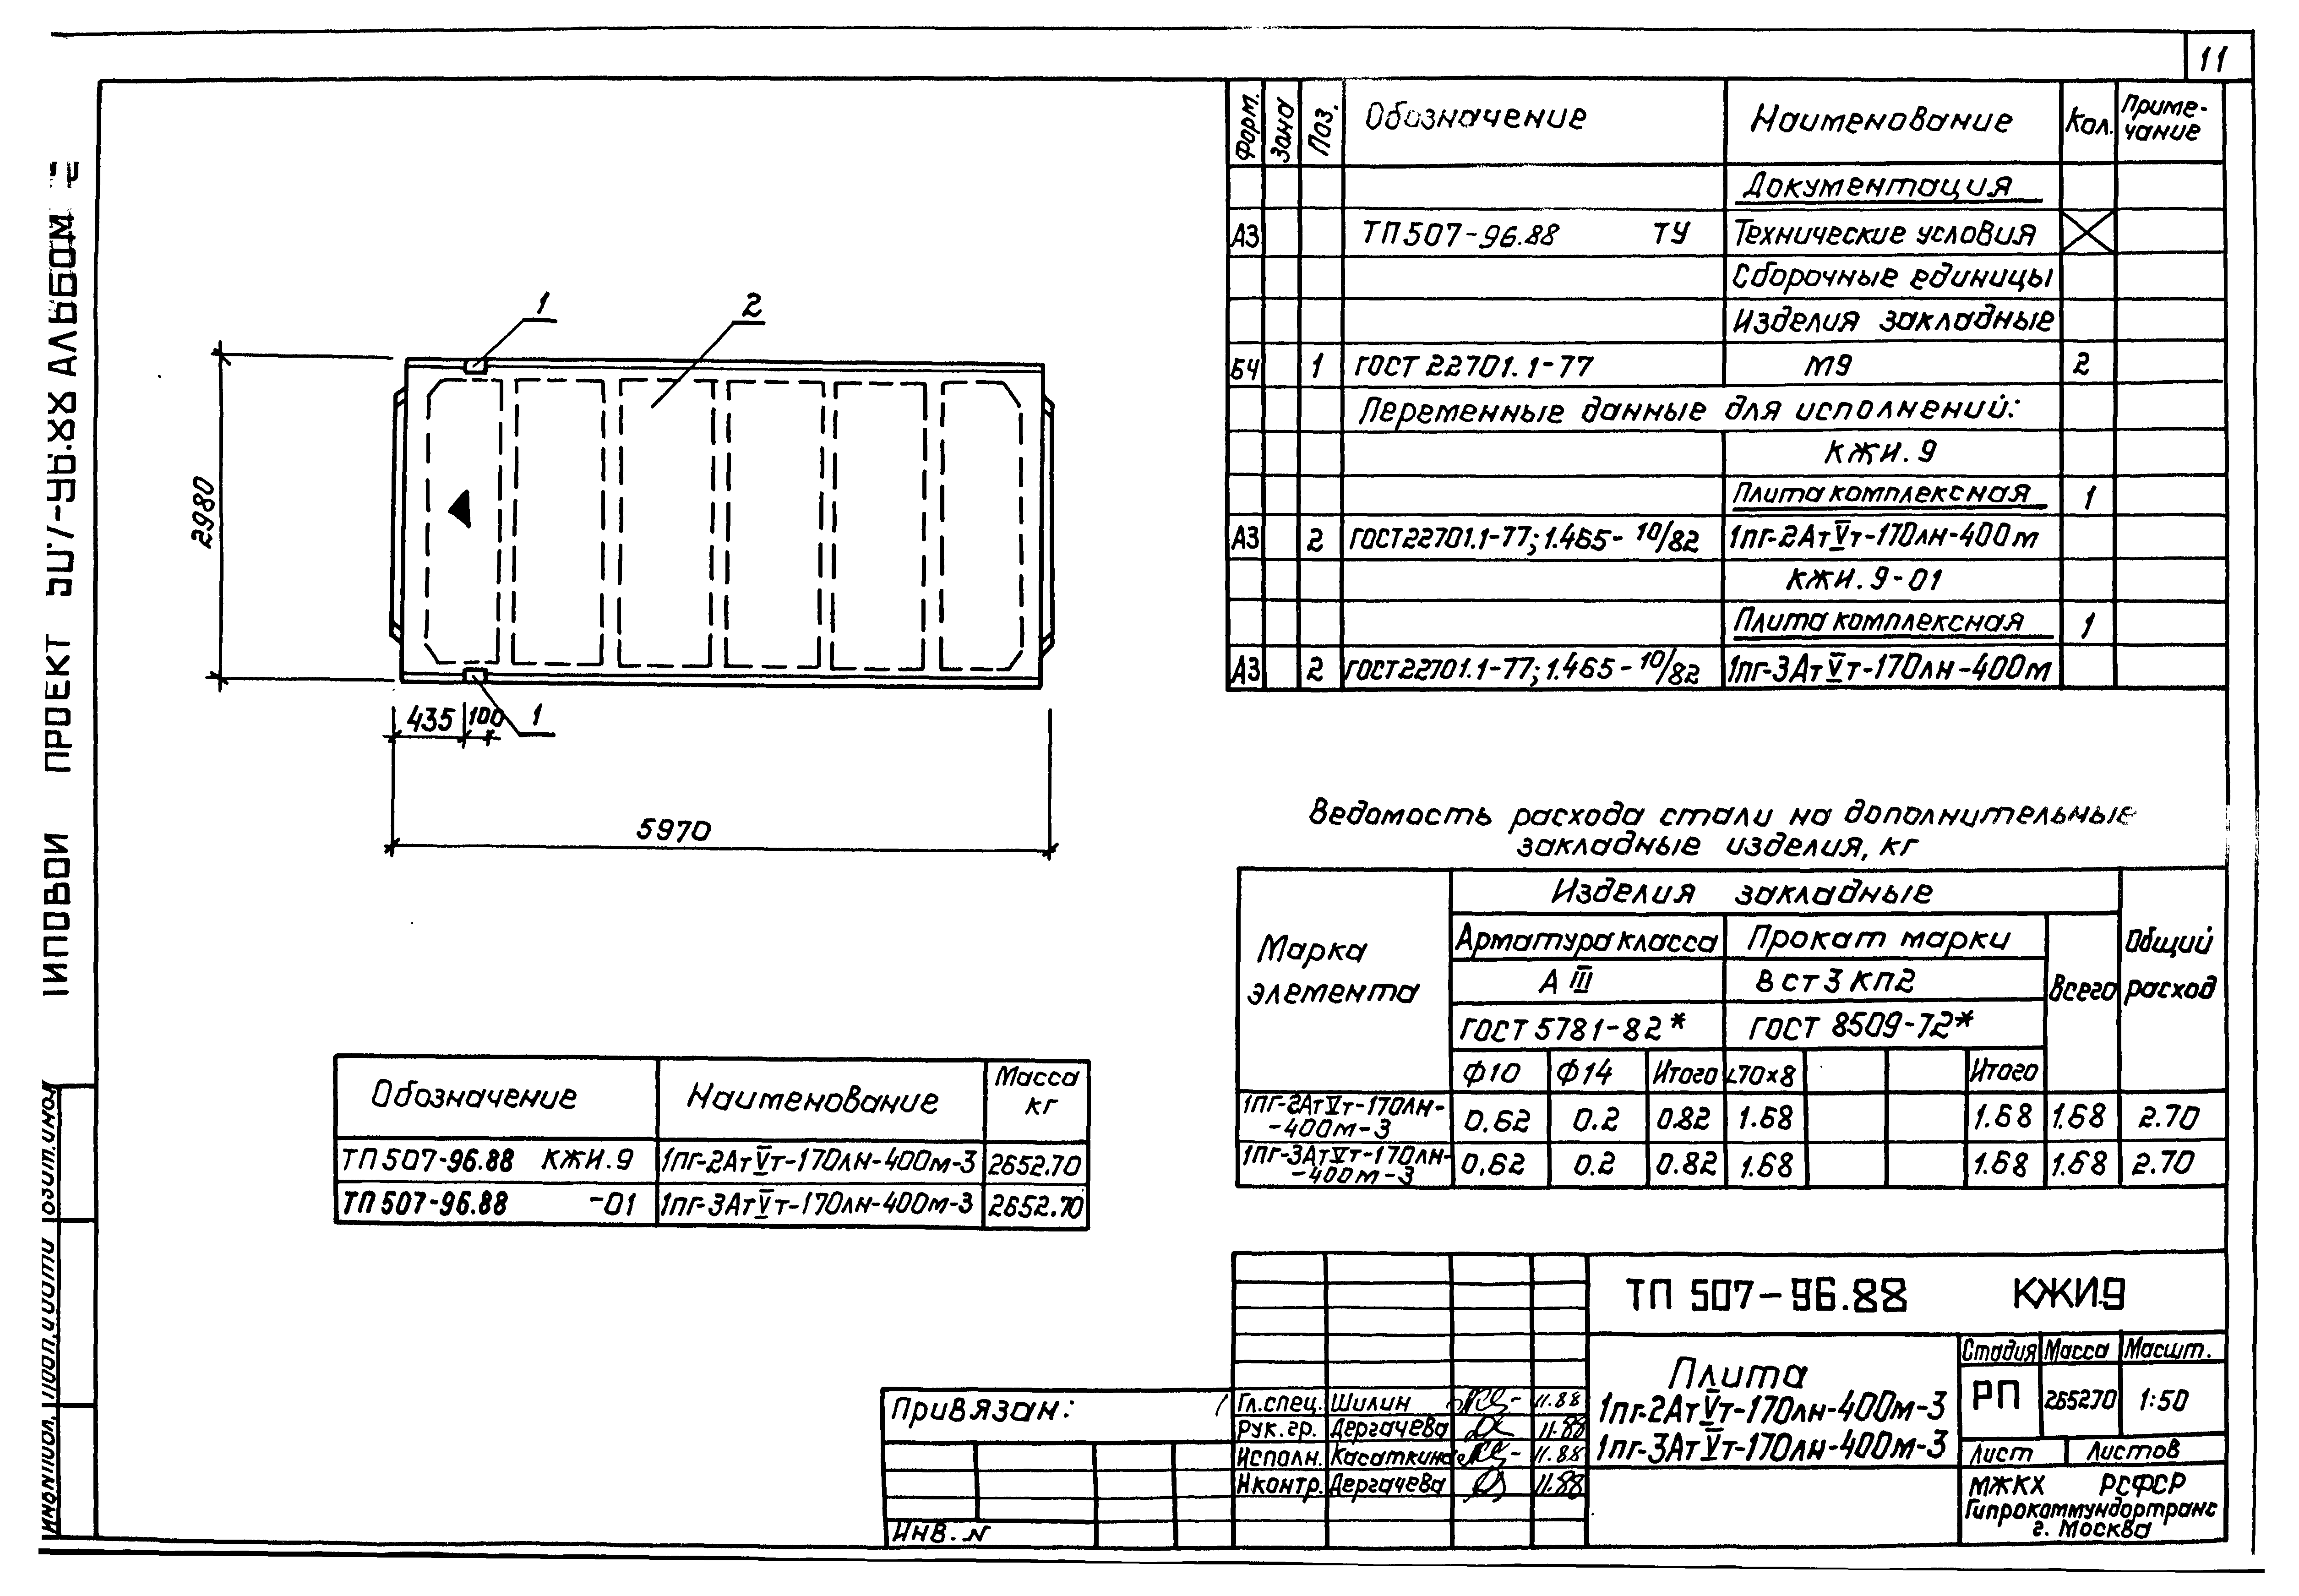 11
ТИПОВОЙ ПРОЕКТ 507-96.88 АЛЬБОМ
Форм. Зона Поз. Обозначение Наименование Кол. Приме-
чание
Документация
А3 ТП507-96.88 ТУ Технические условия
Сборочные единицы
Изделия закладные
БЧ 1 ГОСТ 22701.1-77 М9 2
Переменные данные для исполнений:
КЖИ.9
Плита комплексная 1
А3 2 ГОСТ22701.1-77; 1.465-10/82 1ПГ-2АтⅤт-170ЛН-400М
КЖИ.9-01
Плита комплексная 1
А3 2 ГОСТ22701.1-77; 1.465-10/82 1ПГ-3АтⅤт-170ЛН-400М
1
2
2980
435 100 1
5970
Ведомость расхода стали на дополнительные
закладные изделия, кг
Марка
элемента
Изделия закладные
Общий
расход
Арматура класса Прокат марки
Всего
А III В ст 3 кп2
ГОСТ 5781-82* ГОСТ 8509-72*
Ф10 Ф14 Итого L70×8 Итого
1ПГ-2АтⅤт-170ЛН-
-400М-3 0.62 0.2 0.82 1.68 1.68 1.68 2.70
1ПГ-3АтⅤт-170ЛН-
-400М-3 0,62 0.2 0.82 1.68 1.68 1.68 2.70
Обозначение Наименование Масса
кг
ТП507-96.88 КЖИ.9 1ПГ-2АтⅤт-170ЛН-400М-3 2652.70
ТП507-96.88 -01 1ПГ-3АтⅤт-170ЛН-400М-3 2652.70
ТП 507-96.88 КЖИ.9
Плита
1ПГ-2АтⅤт-170ЛН-400М-3
1ПГ-3АтⅤт-170ЛН-400М-3
Стадия Масса Масшт.
РП 265270 1:50
Лист Листов
МЖКХ РСФСР
Гипрокоммундортранс
г. Москва
Гл.спец. Шилин 11.88
Рук.гр. Дергачева 11.88
Исполн. Касаткина 11.88
Н.контр. Дергачева 11.88
Привязан:
Инв. N